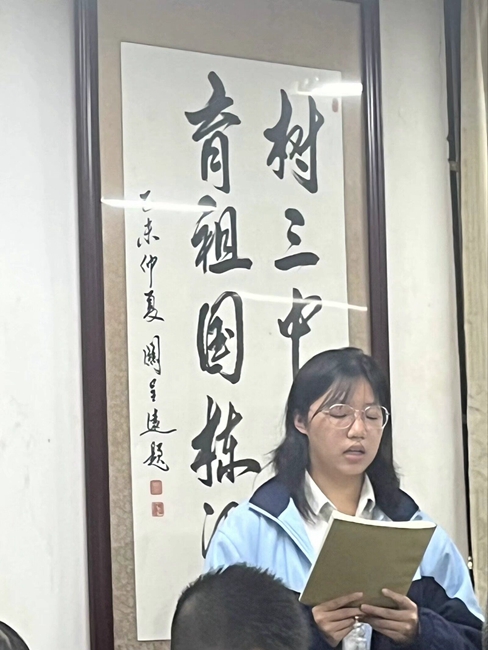 树三中
育祖国栋
乙未仲夏 關呈遠题